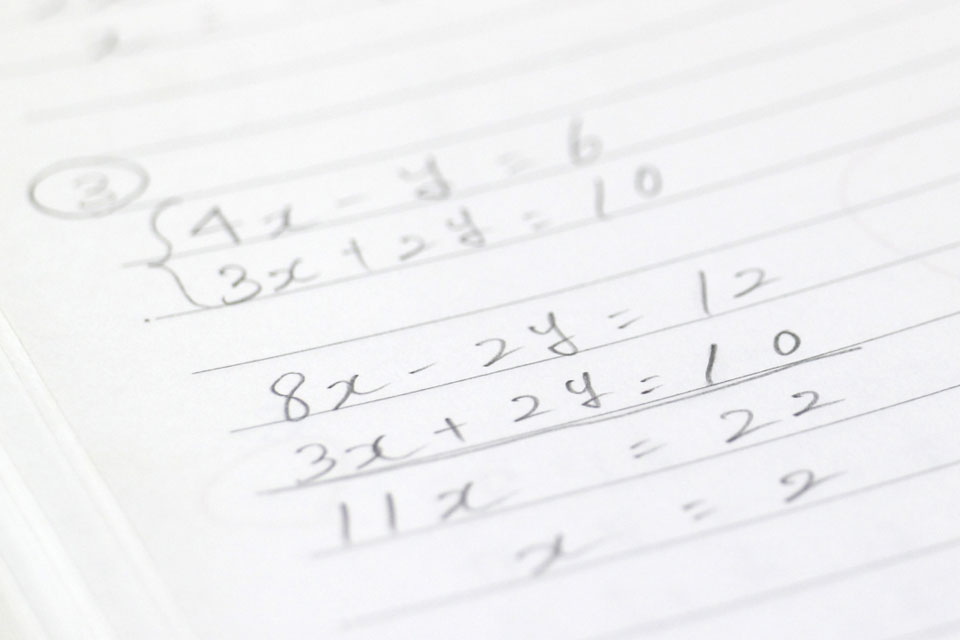 ③ 4x - y = 6
3x + 2y = 10
8x - 2y = 12
3x + 2y = 10
11x = 22
x = 2